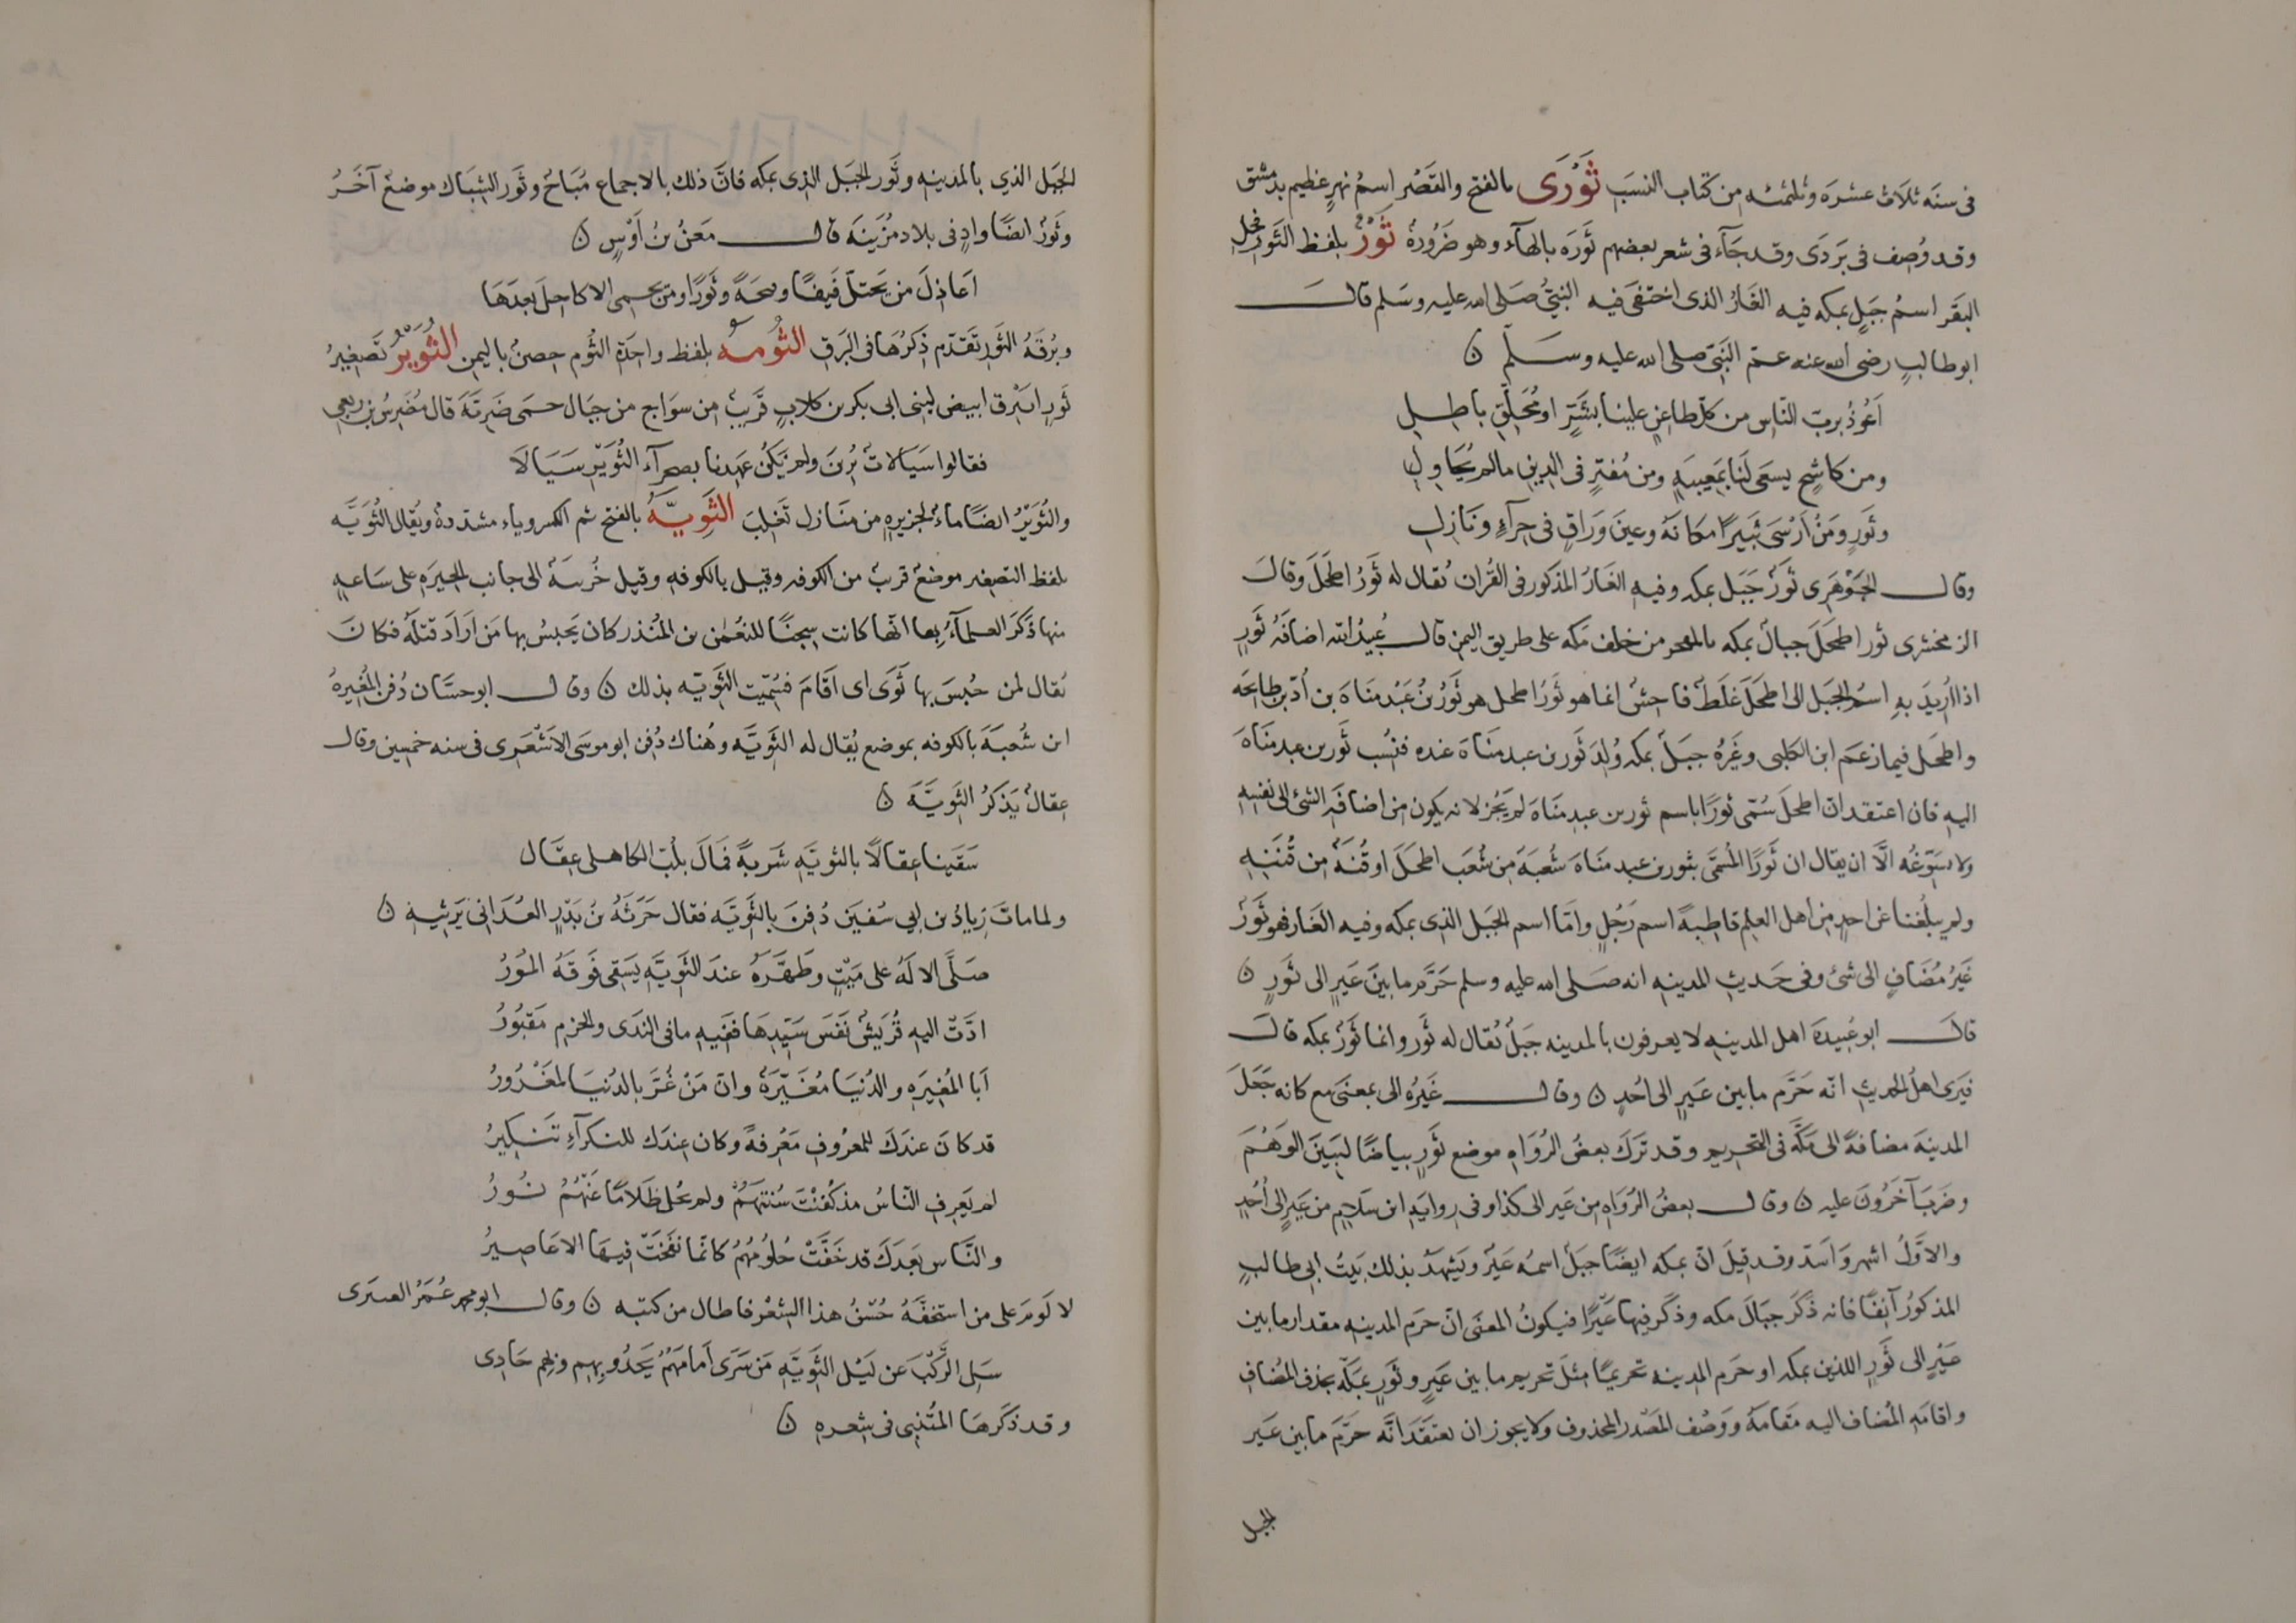 فى سنَه ثلاَث عشرَه وثلثمئه من كتاب النسَب ثَوْرَى بالفتح والقَصْر اسمُ نهرٍ عظيم بدمشق
وقد وُصِف فى بَرَدَى وقد جَآء فى شعر بعضهم ثَورَه بالهآء وهو ضَرُورةٌ ثَوْرٌ بلفظ الثَور فحل
البقَر اسمُ جَبلٍ بمكه فيه الغَارُ الذى اختفَى فيه النبىُّ صَلى الله عليه وسَلم قالَ
ابو طالبٍ رضى الله عنه عمّ النَبىّ صلى الله عليه وسَلّم ن
اَعُوذُ بربّ النّاس من كلّ طاعنٍ علينا بشَرٍّ او مُحَلِّقِ باطِلِ
ومن كاشحٍ يسعَى لَنا بمَعِيبَهٍ ومن مُفترٍ فى الدين مالم يُحَاوِلِ
وثَورٍ ومَنْ اَرْسَى ثَبَيرًا مكانَهُ وعينَ وَرَاقٍ فى حِرآءٍ ونَازِلِ
وقال الجَوْهَرِى ثَورٌ جَبَل بمكه وفيه الغَارُ المذكور فى القُران يُقال له ثَورُ اطحَلَ وقالَ
الزمخشرى ثور اطحَلَ جبالٌ بمكه بالمفجر من خلف مَكه على طريق اليمن قال عُبيدُ الله اضافَهُ ثَورٍ
اذا اُريدَ بهِ اسمُ الجَبَل الى اطحَلَ غَلَطٌ فاحِشٌ انما هو ثَورُ اطحل هو ثَورُ بنُ عَبْد مَنَاهَ بن اُدّ بن طابخَه
واطحَل فيما زعَم ابن الكلبى وغَيرُهُ جبَلٌ بمكه وُلدَ ثَور بن عبد مَنَاهَ عنده فنُسِب ثَور بن عبد مَنَاهَ
اليهِ فان اعتقد ان اطحلَ سُمّى ثورًا باسم ثور بن عبد مَنَاهَ لم يَجُز لانه يكون من اضافَهِ الشئ الى نفسِهِ
ولا يسَوّغُه الّا ان يقال ان ثَورًا المُسَمَّى بثور بن عبد مَنَاهَ شُعبَهٌ من شُعَب اطحَلَ او قُنَهٌ من قُننِهِ
ولم يبلُغنا عَن احدٍ من اهل العِلم قاطِبهً اسم رَجُلٍ وامّا اسم الجَبَل الذى بمكه وفيه الغَار فهو ثَورٌ
غَيرُ مُضَافٍ الى شئ وفى حَديثِ المدينهِ انه صَلى الله عليه وسلم حَرَّم ما بينَ عَيرٍ الى ثَورٍ ن
قالَ ابو عُبيدهَ اهل المدينهِ لا يعرفون بالمدينه جبَلٌ يُقال له ثَور وانما ثَورٌ بمكه قالَ
فيَرى اهلُ الحديثِ انّه حَرَّم ما بين عَيرٍ الى اُحُدٍ ن وقال غَيرُهُ الى بمعنَى مع كانه جَعَلَ
المدينهَ مضافهً الى مكّه فى التحريم وقد تَرَكَ بعضُ الرُوَاهِ موضع ثَورٍ بياضًا ليَبينَ الوَهْمُ
وضَربَ آخَرُونَ عليه ن وقال بعضُ الرُوَاهِ من عَير الى كذا وفى روايَهِ ابن سَلامٍ من عَيرٍ الى اُحُدٍ
والاَوّلُ اشهر وَاسَدّ وقد قيلَ انّ بمكه ايضًا جَبَلٌ اسمُه عَيْر ويَشهَد بذلكَ بَيتُ ابى طالبٍ
المذكورُ آنِفًا فانه ذَكَر جبَالَ مكه وذكَر فِيها عَيْرًا فيكونُ المعنَى انّ حَرَم المدينهِ مقدار ما بين
عَيْرٍ الى ثَورٍ اللذين بمكه او حَرم المدينه تحريمًا مثلَ تحريم ما بين عَيرٍ وثَورٍ بمكّه بحذف المُضاف
واقامَهِ المُضاف اليه مَقامَهُ ووَصْف المَصْدر المحذوف ولا يجوز ان يعتقَد انّه حَرَّم ما بين عَير
الجبل
الجَبَل الذي بالمدينهِ وثَور الجَبَل الذى بمكه فانّ ذلك بالاجماع مُبَاحٌ وثَور الشِبَاك موضعٌ آخَرُ
وثَورٌ ايضًا وادٍ فى بلاد مُزَينَه قال مَعنُ بنُ اَوْسٍ ن
اَعَاذِلَ من يَحتلّ فَيفًا وفيحَهً وثَورًا ومن يحمى الاكاحِلَ بعدَهَا
وبُرقَهُ الثَور تقَدّم ذكرُهَا فى البُرَق الثُومَه بلفظ واحِدَهِ الثُوم حِصنٌ باليمن الثُوَيْرُ تَصغِيرُ
ثَور ابَيْرق ابيض لبنى ابى بكر بن كلابٍ قَريبٌ من سوَاج من جبَال حمى ضَرِيّه قال مُضَرِسُ بن ربعى
فقالوا سَيَالاتٌ بُرنَ ولم يَكُن عَهِدنا بصحرآء الثُوَيّر سَيَالاَ
والثُوَيْرُ ايضًا ماءٌ بالجزيرهِ من منَازل تَغلِبَ الثَوِيَّهُ بالفتح ثم الكسر وياء مشددهٌ ويُقال الثُوَيَّه
بلفظ التصغير موضعٌ قريبٌ من الكوفهِ وقيل بالكوفهِ وقيل خُرَيبَهٌ الى جانب الحِيرَه على سَاعهٍ
منها ذكَرَ العلمآءُ بها انّها كانت سِجنًا للنعمٰن بن المُنذر كان يَحبِسُ بها مَن ارَادَ قتلَهُ فكانَ
يُقال لمن حُبسَ بها ثوَى اى اقامَ فسُمّيَت الثَويّه بذلك ن وقال ابو حسَّان دُفن المُغيرهُ
ابن شُعبَهَ بالكوفه بموضعٍ يُقال له الثَويَّه وهُناك دُفِن ابو موسَى الاَشْعَرى فى سنه خمسين وقال
عقالٌ يَذكُرُ الثَويَّهَ ن
سَقَينا عِقالاً بالثويّهِ شَربهً فمَالَ بلُبّ الكاهلى عِقَال
ولما مات زيادُ بن ابى سُفيَن دُفِنَ بالثَويّه فقال حَرَثَهُ بنُ بَدْرٍ الغُدَانى يَرثيهِ ن
صَلَّى الالَهُ على مَيّتٍ وطَهَّرَهُ عندَ الثَويّهِ يَسقِى فَوقَهُ المُورُ
ادَّت اليهِ قُرَيشٌ نَفسَ سَيّدِهَا ففيهِ مافى الندَى والحزمِ مَقبُورُ
اَبا المُغِيرَهِ والدُنيَا مُغَيِّرَهٌ وانّ مَنْ غُرَّ بالدُنيَا لمَغْرُورُ
قد كانَ عندَكَ للمعرُوفِ مَعْرِفهٌ وكان عِندَك للنكرآءِ تَنكِيرُ
لم يَعرِفِ النّاسُ مذ كُفِنْتَ سُنتَهُمُ ولم يُحل ظَلامًا عَنْهُمُ نُورُ
والنّاس بَعدَكَ قد خَفَّتْ حُلُومُهُمُ كانّما نفَخَتْ فِيهَا الاعَاصِيرُ
لا لَومَ على من استخفّهُ حُسْنُ هذا الشِعْر فاطال من كتبه ن وقال ابو محمد عُمَرُ العسرى
سَلِ الرَّكْبَ عن لَيْل الثَويّهِ مَن سَرَى اَمَامَهُمُ يَحَدُو بِهِم وبِهِم حَادِى
وقد ذكَرهَا المُتَنَبى فى شِعرهِ ن